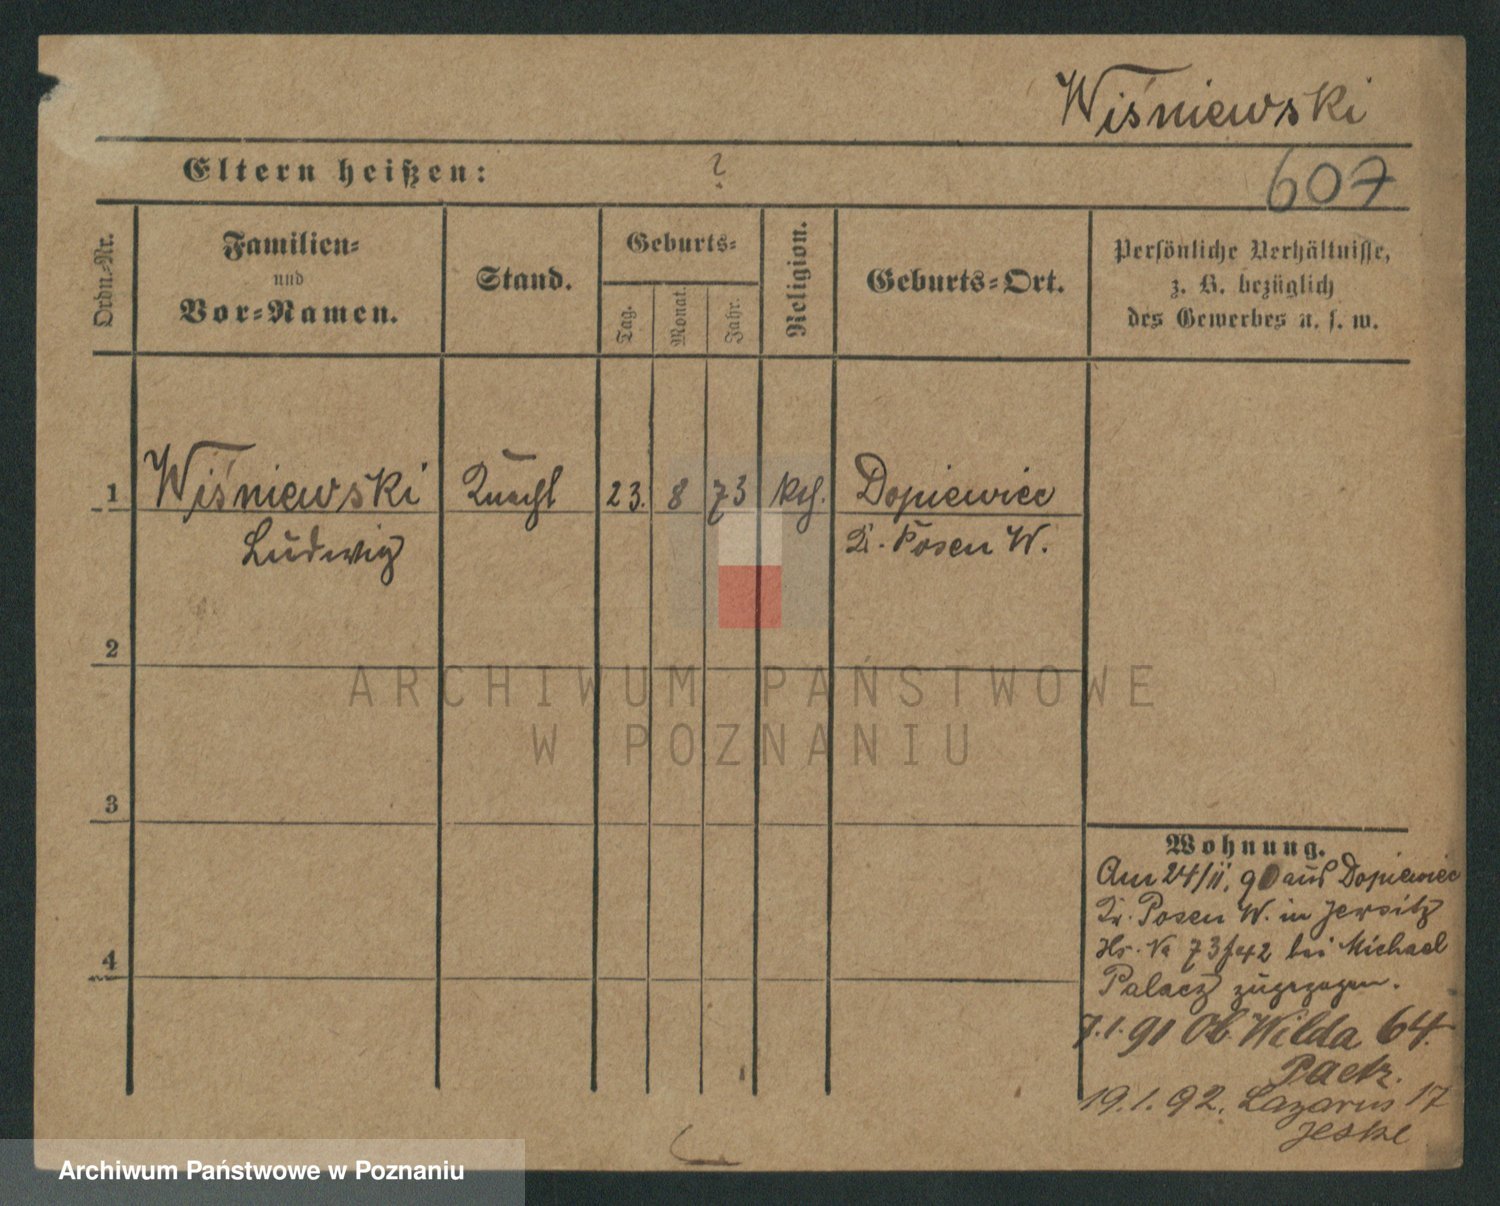 Wiśniewski
Eltern heißen: ?
607
Ordn.-Nr.
Familien-
und
Vor-Namen.
Stand.
Geburts-
Tag.
Monat.
Jahr.
Religion.
Geburts-Ort.
Persönliche Verhältnisse,
z. B. bezüglich
des Gewerbes u. s. w.
1 Wiśniewski Knecht 23. 8 73 kth. Dopiewiec
Ludwig Kr. Posen W.
2
ARCHIWUM PAŃSTWOWE
W POZNANIU
3
4
Wohnung.
Am 24/11. 90 aus Dopiewiec
Kr. Posen W. in Jersitz
Hs. No 73/42 bei Michael
Palacz zugezogen.
7.1.91 Ob. Wilda 64.
19.1.92. Lazarus 17
Jeske
Archiwum Państwowe w Poznaniu